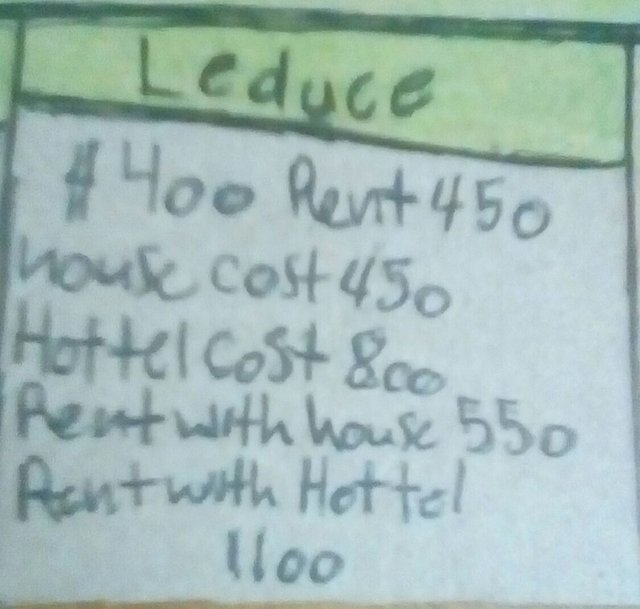 Leduce
$400 Rent 450
house cost 450
Hottel cost 800
Rent with house 550
Rent with Hottel
1100